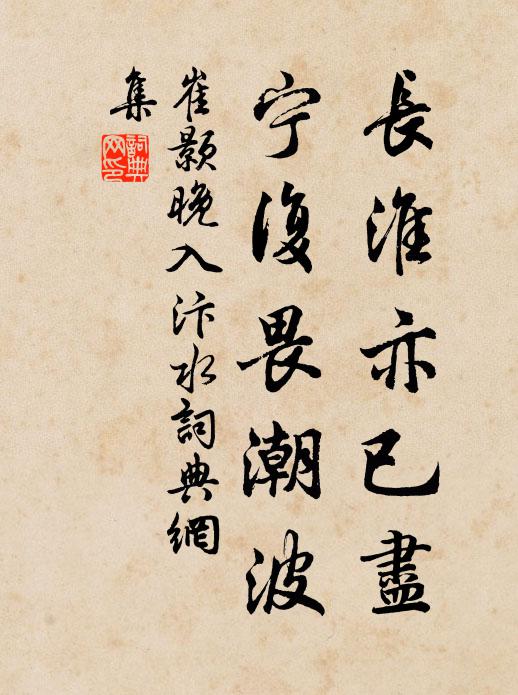 長淮亦已盡
宁復畏潮波
崔顥晚入汴水詞典網
集
詞典
网印